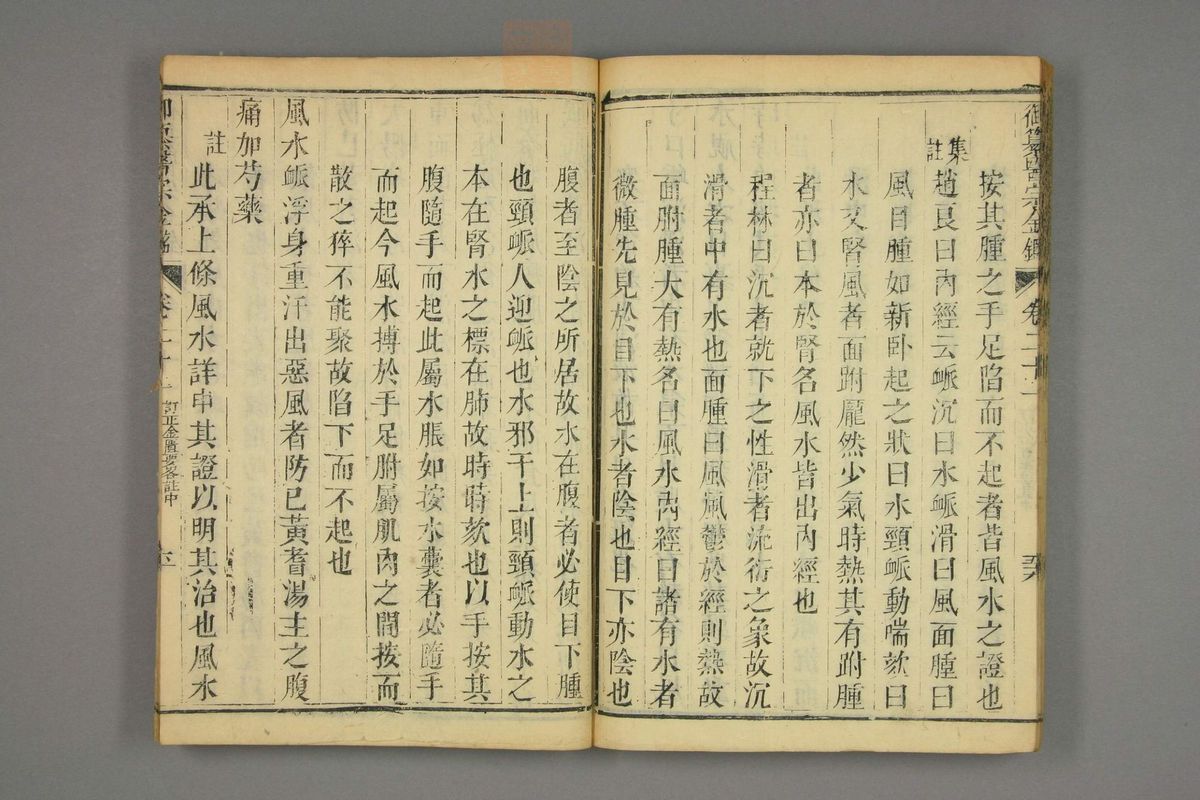 御纂醫宗金鑑 卷二十二
按其腫之手足陷而不起者皆風水之證也
集註
趙良曰內經云脈沉曰水脈滑曰風面腫曰
風目腫如新卧起之狀曰水頸脈動喘欬曰
水又腎風者面胕龎然少氣時熱其有胕腫
者亦曰本於腎名風水皆出內經也
程林曰沉者就下之性滑者流衍之象故沉
滑者中有水也面腫曰風風鬱於經則熱故
面胕腫大有熱名曰風水內經曰諸有水者
微腫先見於目下也水者陰也目下亦陰也
腹者至陰之所居故水在腹者必使目下腫
也頸脈人迎脈也水邪干上則頸脈動水之
本在腎水之標在肺故時時欬也以手按其
腹隨手而起此屬水脹如按水囊者必隨手
而起今風水搏於手足胕屬肌肉之間按而
散之猝不能聚故陷下而不起也
風水脈浮身重汗出惡風者防已黃耆湯主之腹
痛加芍藥
註
此承上條風水詳申其證以明其治也風水
御纂醫宗金鑑 卷二十 訂正金匱要略註中